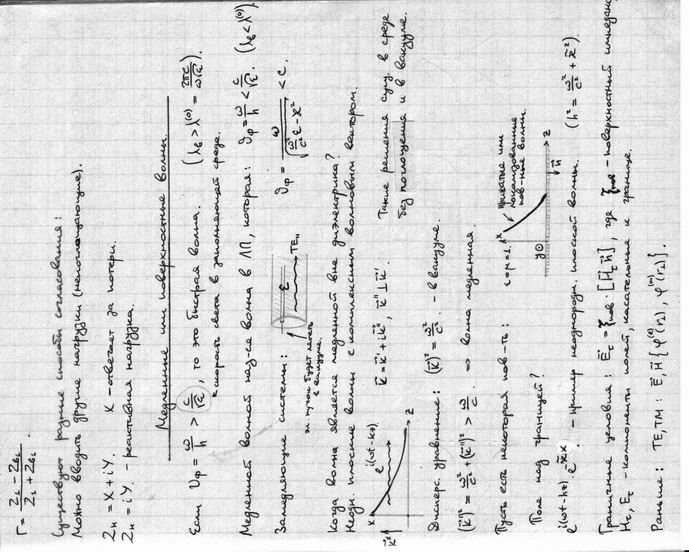 Γ = (Z_L − Z_в₁) / (Z_L + Z_в₁).
Существуют разные способы согласования:
Можно вводить другие нагрузки (непоглощающие).
Z_н = X + iY. X – отвечает за потери
Z_н = iY. – реактивная нагрузка.
Медленные или поверхностные волны.
Если υ_ф = ω/h > c/√ε, то это быстрая волна. (λ_в > λ^(0) = 2πc/(ω√ε)).
скорость света в заполняющей среде.
Медленной волной наз-ся волна в ЛП, которая: υ_ф = ω/h < c/√ε. (λ_в < λ^(0))
Замедляющие системы: ε TE₁₁ υ_ф = ω/√(ω²/c² ε − ϰ²) < c.
пучок будет лететь в вакууме.
Когда волна является медленной вне диэлектрика?
Неодн. плоские волны с комплексным волновым вектором.
x e^{i(ωt−kz)} z k⃗″
k⃗ = k⃗′ + ik⃗″, k⃗″ ⊥ k⃗′. Такие решения сущ. в среде
без поглощения и в вакууме.
Дисперс. уравнение: (k⃗)² = ω²/c². – в вакууме.
(k⃗′)² = ω²/c² + (k⃗″)² > ω²/c² ⇒ волна медленная.
Пусть есть некоторая пов-ть: ε = μ = 1. x y z h⃗
прижатые или локализованные пов-ные волны.
Поле над границей?
e^{i(ωt−hz)} · e^{−ϰ̃x} – пример неоднородн. плоской волны. (h² = ω²/c² + ϰ̃²).
Граничные условия: E⃗_τ = ζ_пов · [H⃗_τ n⃗], где ζ_пов – поверхностный импеданс
H_τ, E_τ – компоненты полей, касательные к границе.
Раньше: TE, TM: E⃗, H⃗ {φ^(e)(r_⊥), φ^(m)(r_⊥)}.